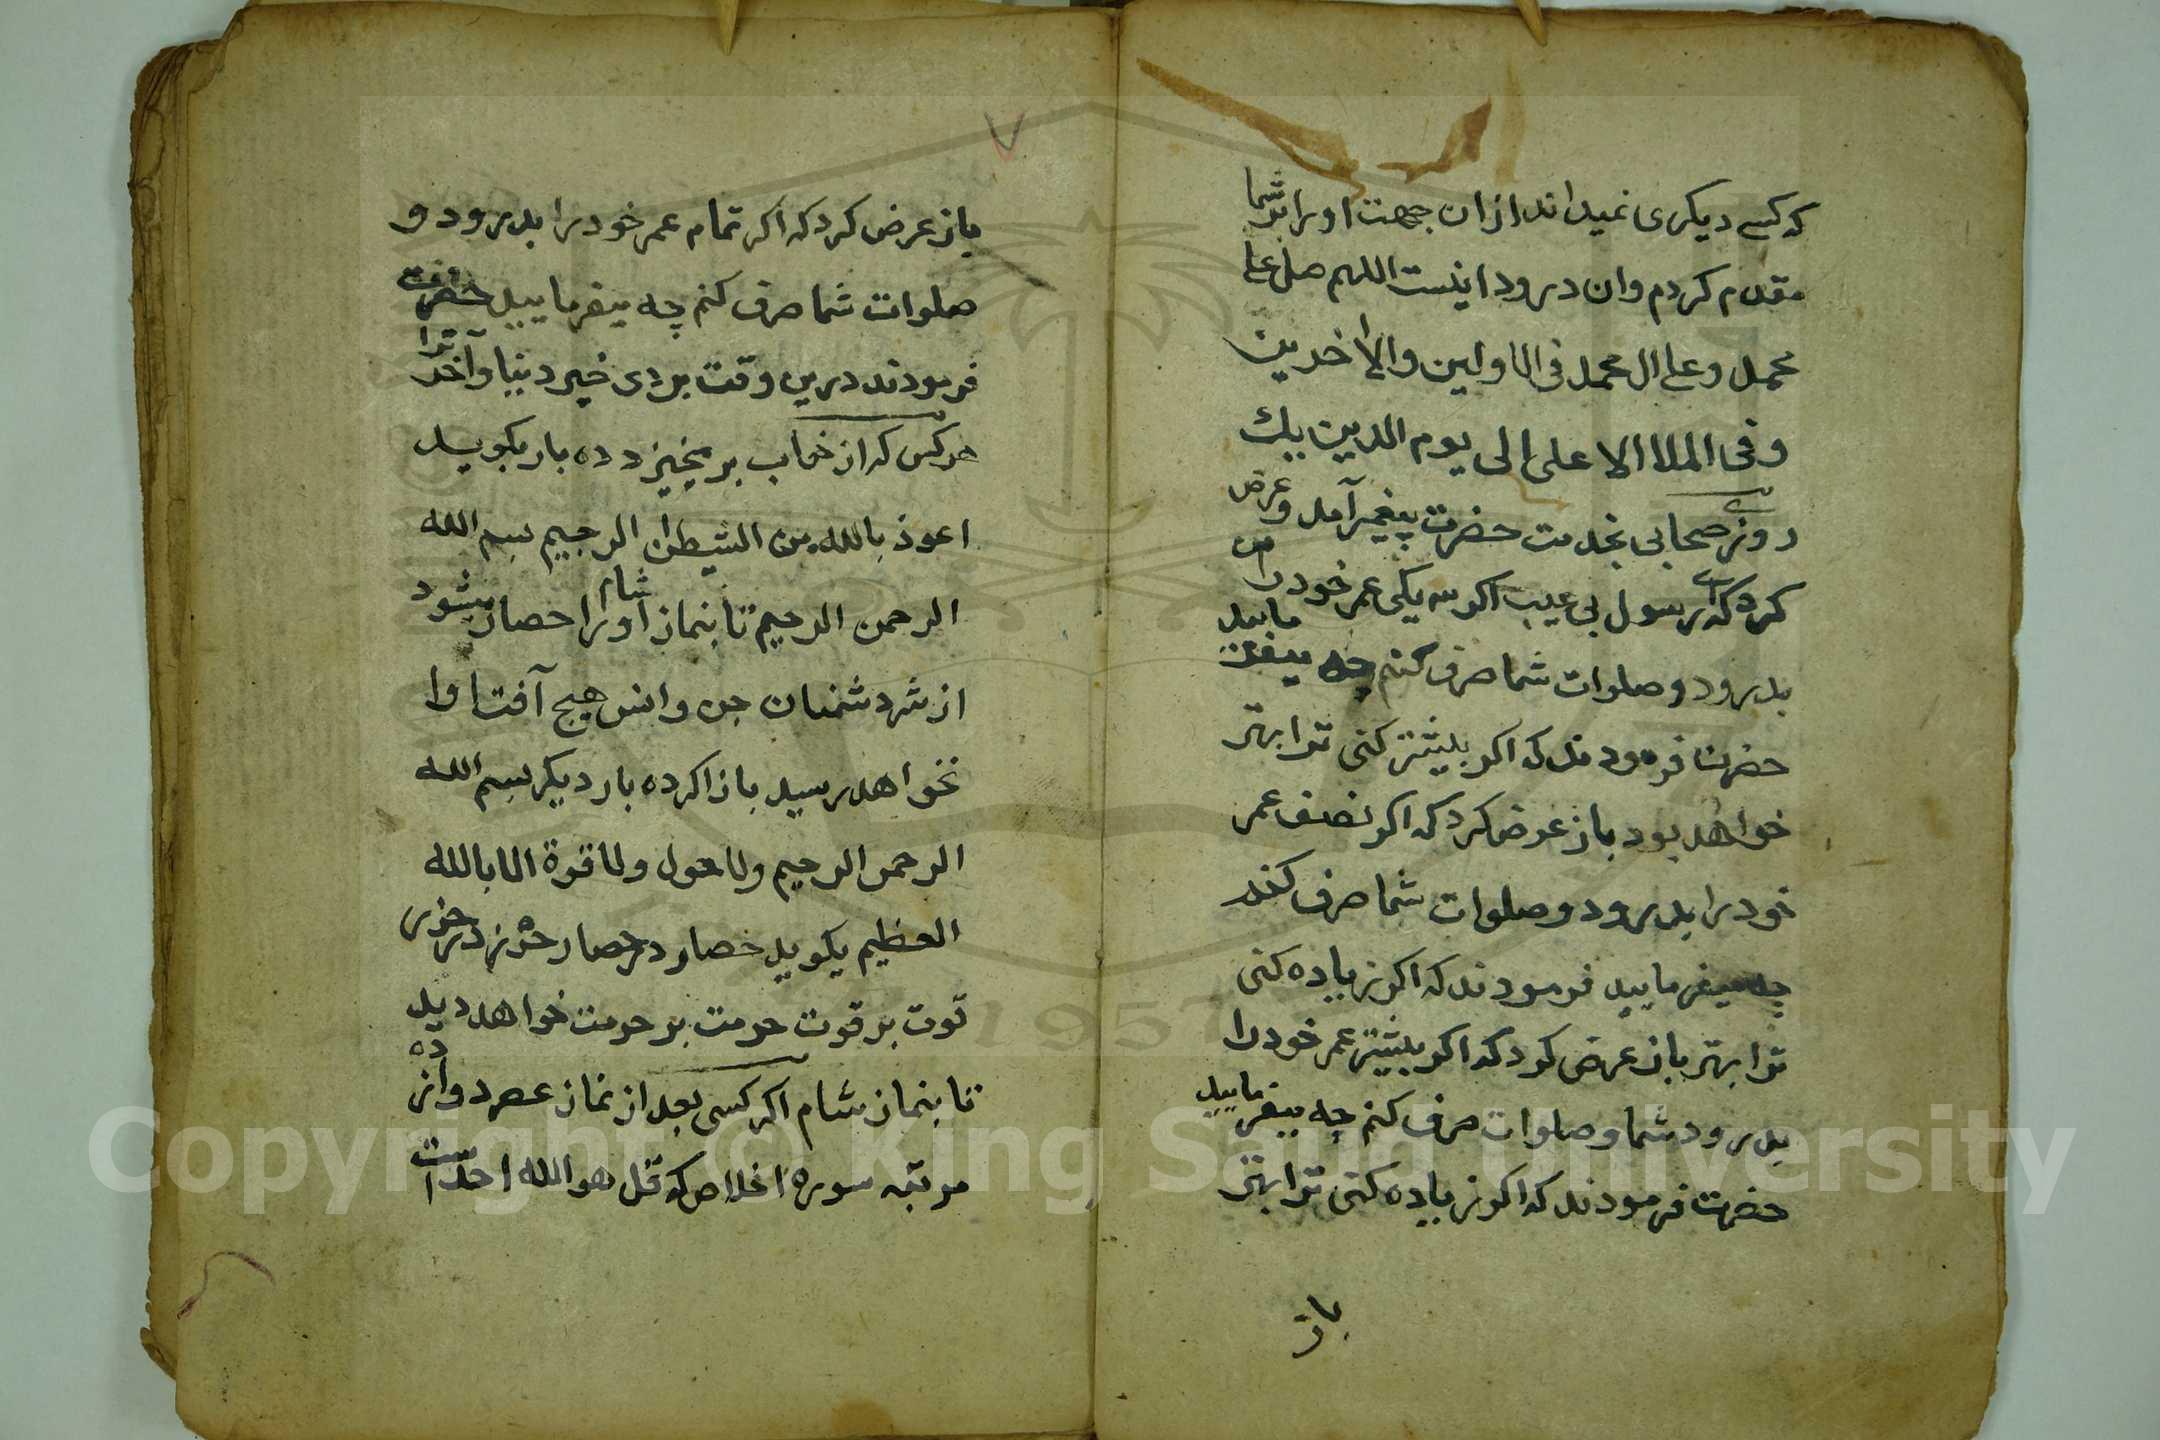 که کسے دیکری نمیداند ازان جهت او را بر شما
مقدم کردم وان درود اینست اللهم صل علی
محمد وعلی ال محمد فی الاولین والاخرین
وفی الملا الاعلی الی یوم الدین بیک
روزے صحابی بخدمت حضرت پیغمبر آمد وعرض
کرد که اے رسول بی عیب اکر سه یکی عمر خود را
بدرود وصلوات شما صرف کنم چه میفرمایید
حضرت فرمودند که اکر بیشتر کنی ترا بهتر
خواهد بود باز عرض کرد که اکر نصف عمر
خود را بدرود وصلوات شما صرف کنم
چه میفرمایید فرمودند که اکر زیاده کنی
ترا بهتر باز عرض کرد که اکر بیشتر عمر خود را
بدرود شما وصلوات صرف کنم چه میفرمایید
حضرت فرمودند که اکر زیاده کنی ترا بهتر
باز
۷
باز عرض کرد که اکر تمام عمر خود را بدرود و
صلوات شما صرف کنم چه میفرمایید حضرت
فرمودند درین وقت بردی خیر دنیا وآخرت را
هر کس که از خواب بر میخیزد ده بار بکوید
اعوذ بالله من الشیطن الرجیم بسم الله
الرحمن الرحیم تا بنماز شام او را حصار میشود
از شر دشمنان جن وانس هیچ آفت او را
نخواهد رسید باز اکر ده بار دیکر بسم الله
الرحمن الرحیم ولا حول ولا قوة الا بالله
العظیم بکوید حصار در حصار حرز در حرز
قوت بر قوت حرمت بر حرمت خواهد دید
تا بنماز شام اکر کسی بعد از نماز عصر دوازده
مرتبه سوره اخلاص که قل هو الله احد است
Copyright © King Saud University
1957